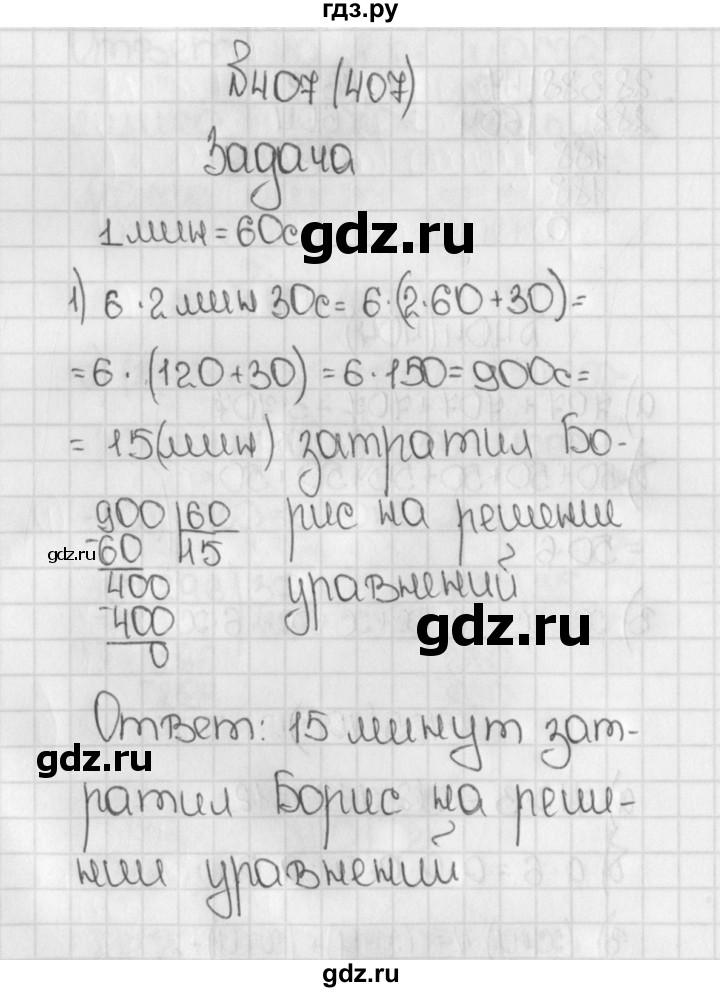 гдз.ру
№407 (407)
Задача
1 мин = 60с
gdz.ru
1) 6·2 мин 30с = 6·(2·60+30)=
=6·(120+30)=6·150=900с=
=15(мин) затратил Бо-
900 60 рис на решении
gdz.ru
-60 15
400 уравнений
-400
gdz.ru
0
Ответ: 15 минут зат-
gdz.ru
ратил Борис на реше-
нии уравнений
gdz.ru